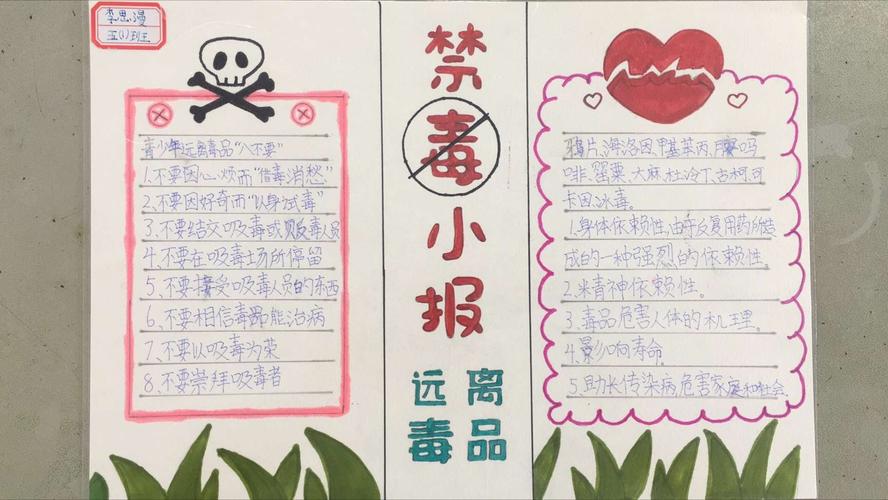 李思漫
五(1)班
青少年远离毒品"八不要"
1、不要因心烦而"借毒消愁"
2、不要因好奇而"以身试毒"
3、不要结交吸毒或贩毒人员
4、不要在吸毒场所停留
5、不要接受吸毒人员的东西
6、不要相信毒品能治病
7、不要以吸毒为荣
8、不要崇拜吸毒者
禁毒小报
远离
毒品
鸦片、海洛因、甲基苯丙、吗
啡、罂粟、大麻、杜冷丁、古柯、可
卡因、冰毒。
1.身体依赖性,由于反复用药所造
成的一种强烈的依赖性。
2.精神依赖性。
3.毒品危害人体的机理。
4.影响寿命
5.助长传染病,危害家庭和社会